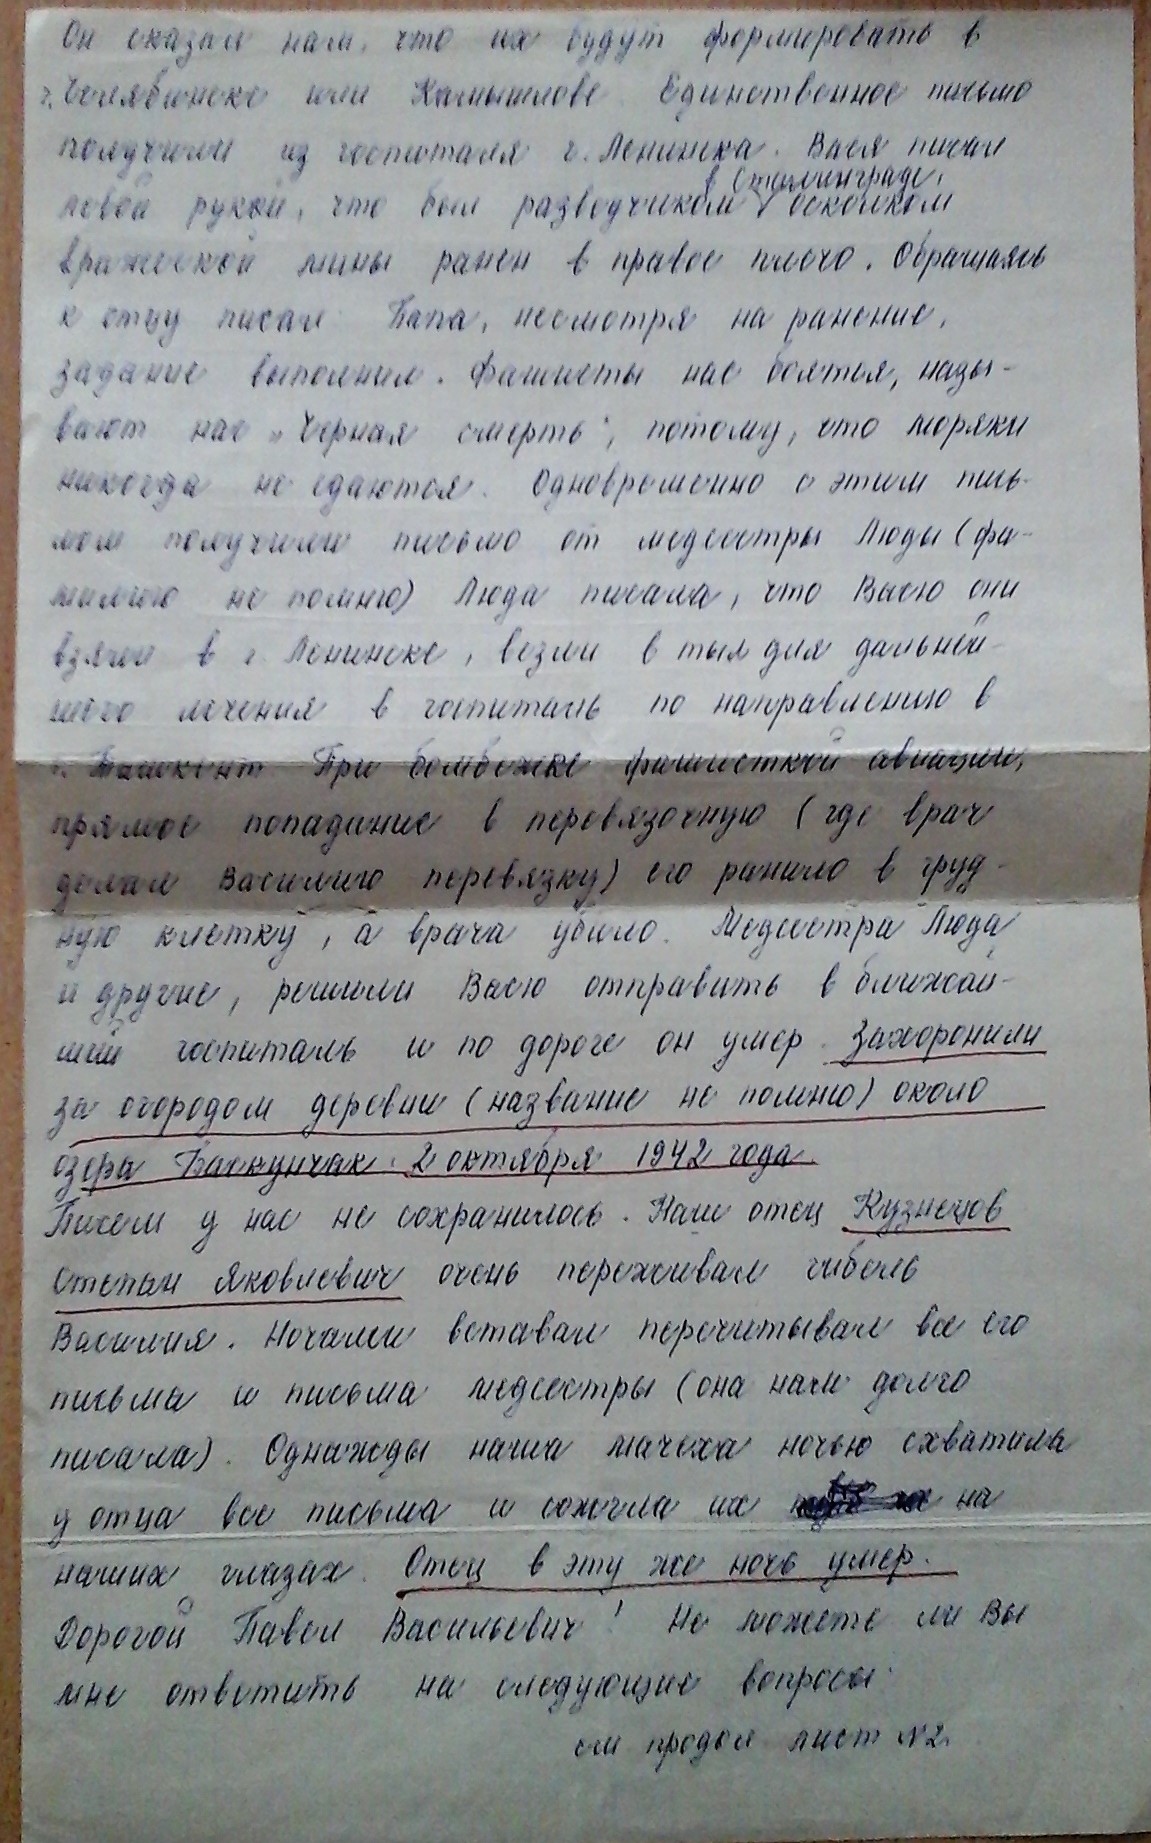 Он сказал нам, что их будут формировать в
г. Челябинске или Камышлове. Единственное письмо
получили из госпиталя г. Ленинска. Вася писал
в Сталинграде,
левой рукой, что был разведчиком V осколком
вражеской мины ранен в правое плечо. Обращаясь
к отцу писал: Папа, несмотря на ранение,
задание выполнил. Фашисты нас боятся, назы-
вают нас „Черная смерть", потому, что моряки
никогда не сдаются. Одновременно с этим пись-
мом получили письмо от медсестры Люды (фа-
милию не помню) Люда писала, что Васю они
взяли в г. Ленинске, везли в тыл для дальней-
шего лечения в госпиталь по направлению в
г. Ташкент. При бомбежке фашисткой авиации,
прямое попадание в перевязочную (где врач
делал Василию перевязку) его ранило в груд-
ную клетку, а врача убило. Медсестра Люда
и другие, решили Васю отправить в ближай-
ший госпиталь и по дороге он умер. Захоронили
за огородом деревни (название не помню) около
озера Баскунчак. 2 октября 1942 года.
Писем у нас не сохранилось. Наш отец Кузнецов
Степан Яковлевич очень переживал гибель
Василия. Ночами вставал перечитывал все его
письма и письма медсестры (она нам долго
писала). Однажды наша мачеха ночью схватила
у отца все письма и сожгла их на
наших глазах. Отец в эту же ночь умер.
Дорогой Павел Васильевич! Не можете ли Вы
мне ответить на следующие вопросы:
см продол лист №2.